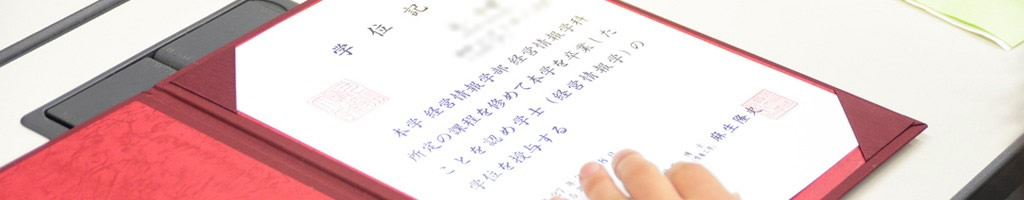 学位記
本学経営情報学部経営情報学科
所定の課程を修めて本学を卒業した
ことを認め学士(経営情報学)の
学位を授与する
麻生隆史